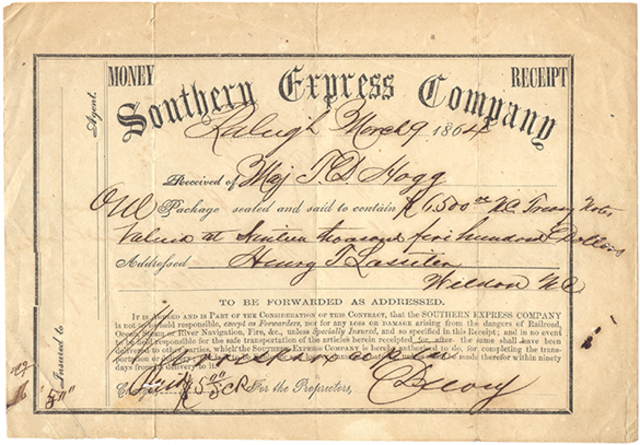 MONEY RECEIPT
Southern Express Company
Raleigh March 9 1864
Received of Maj T. D. Hogg
One Package sealed and said to contain $ N.C. Treasy Notes
Valued at Sixteen thousand five hundred Dollars
Addressed Henry T. Lassiter
Weldon NC
TO BE FORWARDED AS ADDRESSED.
IT IS AGREED AND IS PART OF THE CONSIDERATION OF THIS CONTRACT, THAT THE SOUTHERN EXPRESS COMPANY
is not to be held responsible, except as Forwarders, nor for any LOSS OR DAMAGE arising from the dangers of Railroad,
Ocean, Steam or River Navigation, Fire, &c., unless Specially Insured, and so specified in this Receipt; and in no event
to be held responsible for the safe transportation of the articles herein receipted for after the same shall have been
delivered to other parties, which the SOUTHERN EXPRESS COMPANY is hereby authorized to do, for completing the trans-
portation or made thereof within ninety
days from delivery to it.
For the Proprietors,
Agent.
Insured to